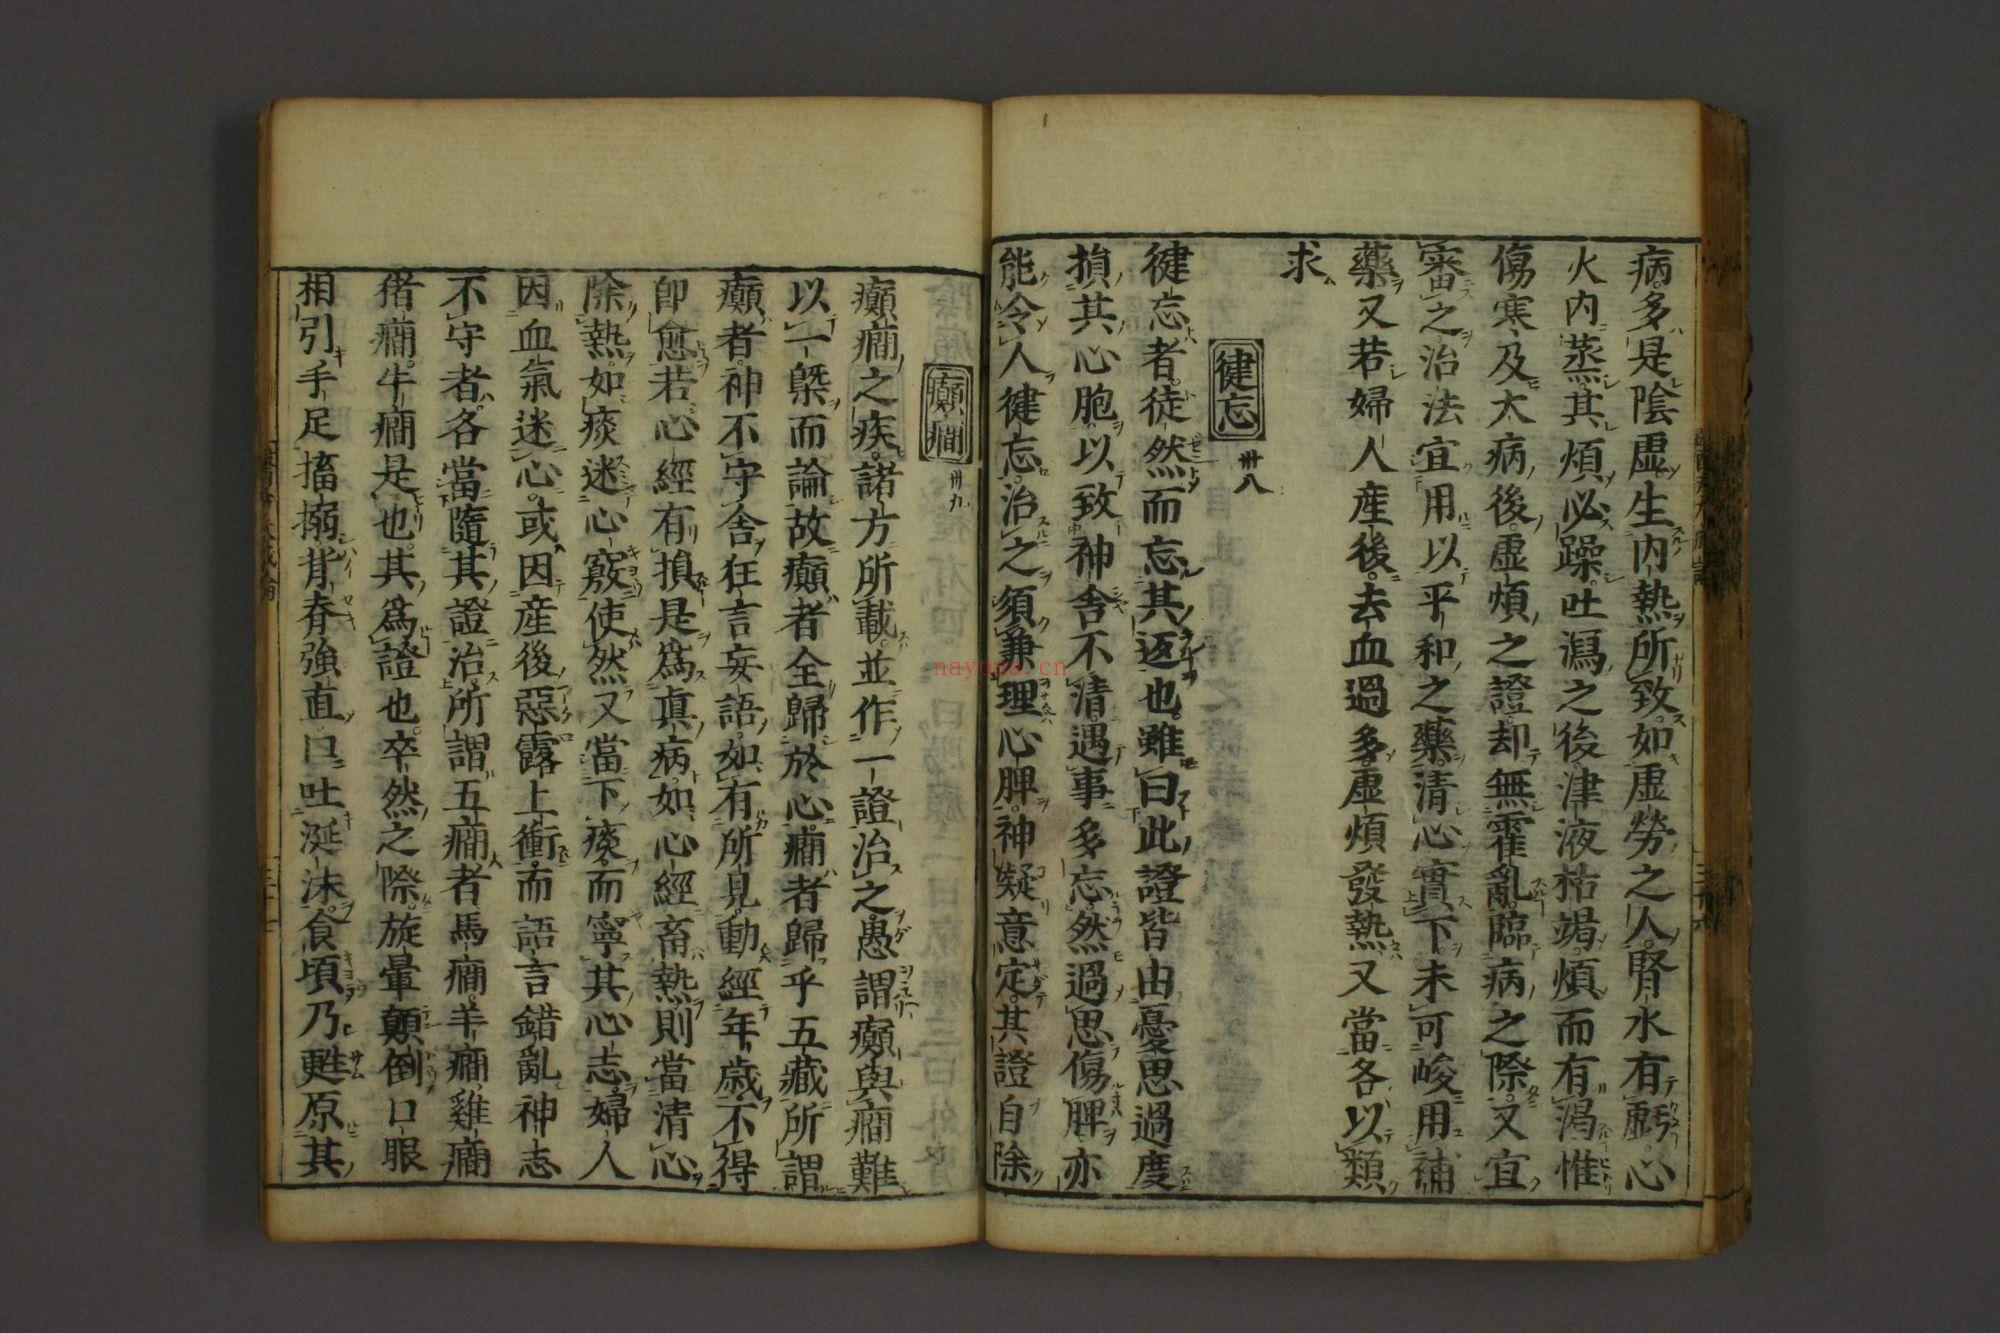 病多是陰虚生内熱所致如虚勞之人腎水有虧心
火内蒸其煩必躁吐瀉之後津液枯竭煩而有渴惟
傷寒及大病後虚煩之證却無霍亂臨病之際又宜
審之治法宜用以平和之藥清心實下未可峻用補
藥又若婦人産後去血過多虚煩發熱又當各以類
求
健忘 卅八
健忘者徒然而忘其返也雖曰此證皆由憂思過度
損其心胞以致神舎不清遇事多忘然過思傷脾亦
能令人健忘治之須兼理心脾神凝意定其證自除
癲癇 卅九
癲癇之疾諸方所載並作一證治之愚謂癲與癇難
以一槩而論故癲者全歸於心癇者歸乎五藏所謂
癲者神不守舎狂言妄語如有所見動經年歳不得
即愈若心經有損是爲真病如心經畜熱則當清心
除熱如痰迷心竅使然又當下痰而寧其心志婦人
因血氣迷心或因産後惡露上衝而語言錯亂神志
不守者各當隨其證治所謂五癇者馬癇羊癇雞癇
猪癇牛癇是也其爲證也卒然之際旋暈顛倒口眼
相引手足搐搦背脊強直口吐涎沫食頃乃甦原其
nayona.cn